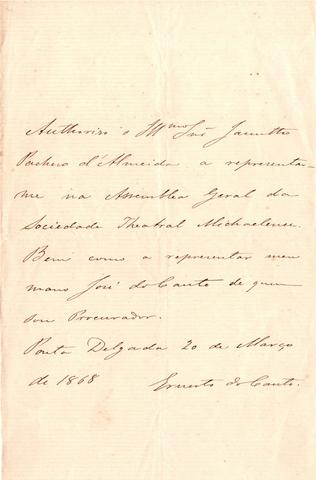 Authoriso o Illmo Snr Jacintho
Pacheco d'Almeida a representar-
me na Assemblea Geral da
Sociedade Theatral Michaelense.
Bem como a representar meu
mano José do Canto de quem
sou Procurador.
Ponta Delgada 20 de Março
de 1868 Ernesto do Canto.